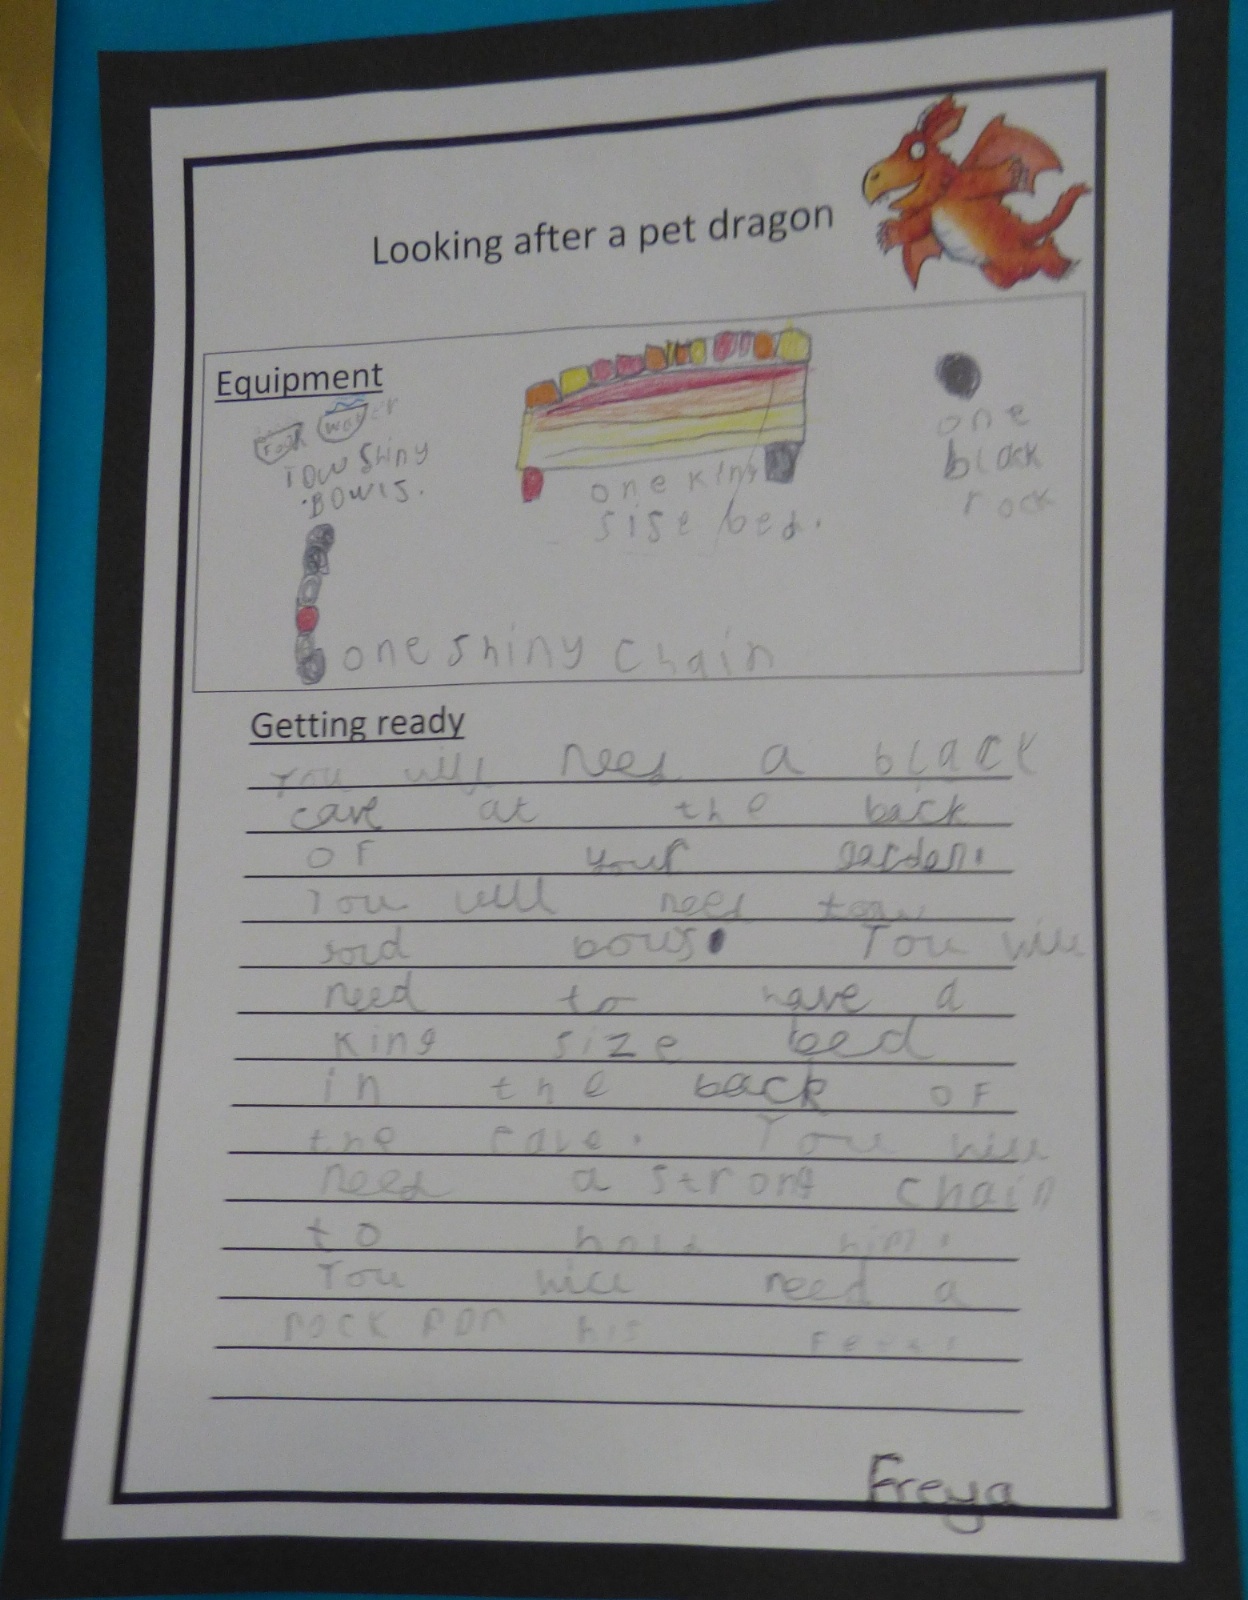 Looking after a pet dragon
Equipment
Food water
Tow Shiny
Bowls.
one king
sise bed.
one
black
rock
one shiny chain
Getting ready
You will need a black
cave at the back
of your garden.
You will need tow
bowls. You will
need to have a
king size bed
in the back of
the cave. You will
need a strong chain
to hold him.
You will need a
rock for his
Freya